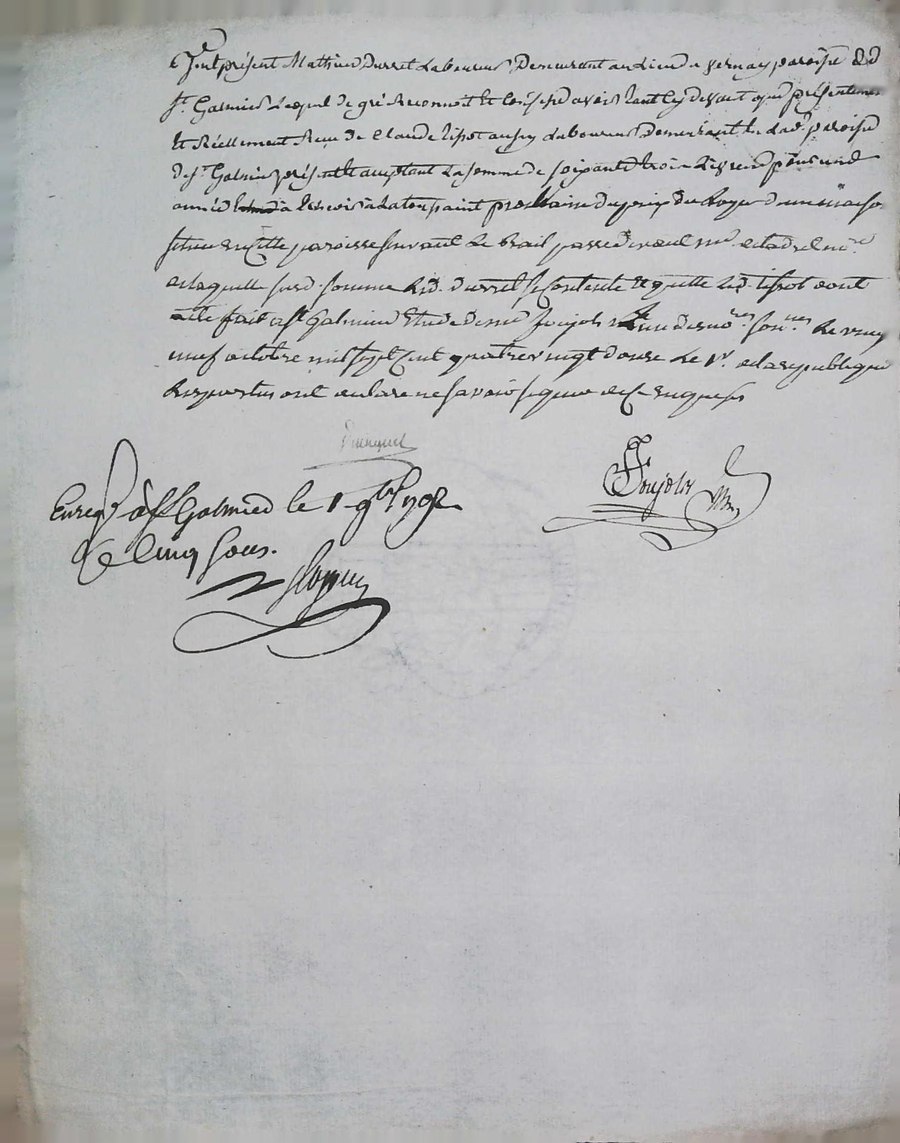 fut présent Mathieu Durret Laboureur Demeurant au Lieu de vernay paroisse dud
St. Galmier Lequel de gré Reconnoit et Confesse avoir tant cy devant que présentement
et Réellement Recu de Claude tissot aussy Laboureur Demeurant de Lad. paroisse
de St. Galmier présent et acceptant La somme de soixante trois Livres pour une
année à la toussaint prochaine du prix du Loyer d'une maison
située en cette paroisse suivant Le Bail passé devant
de laquelle susd. somme Led. durret se contente et quitte Led. tissot dont
acte fait à St Galmier Etude de me Poujols L'un des nores sousnes Le vingt
neuf octobre mil sept Cent quatre vingt douze Le 1er. de la republique
Les parties ont declaré ne savoir signer de ce Enquises
Poujols
Enregé à St Galmier le 1 9bre 1792
Re cinq sous.